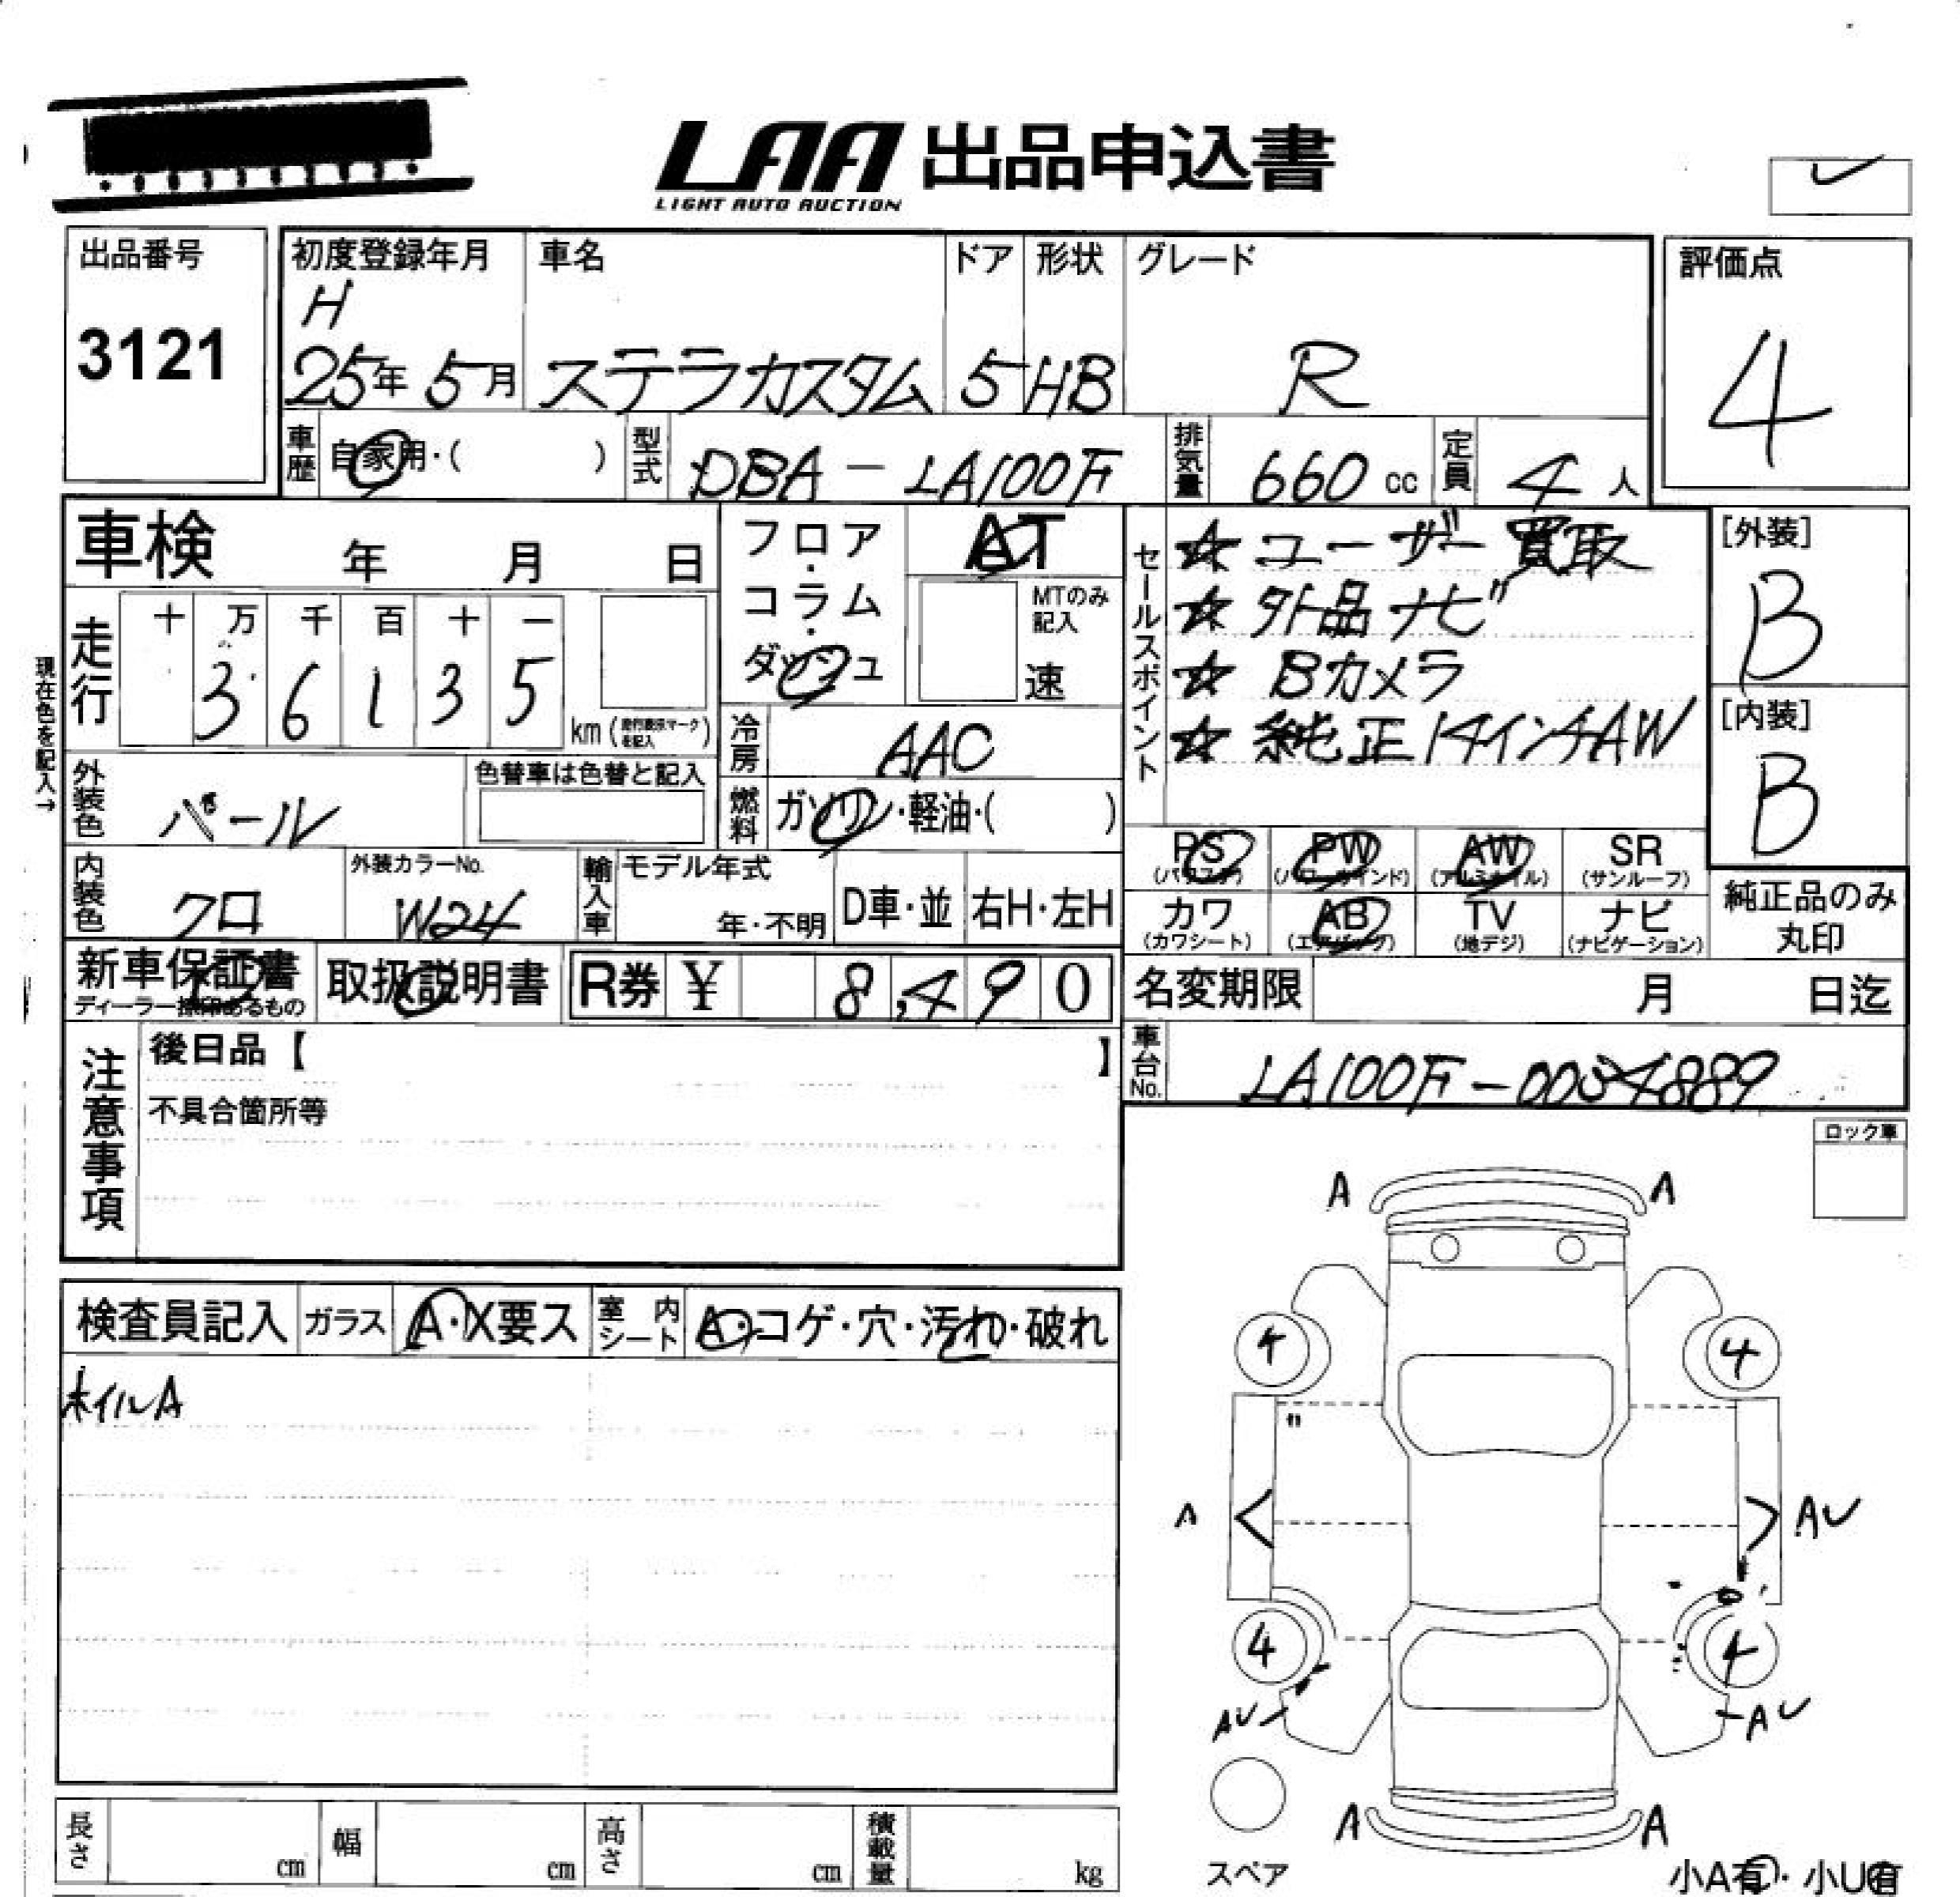 LAA 出品申込書
LIGHT AUTO AUCTION
出品番号
3121
初度登録年月
H
25年 5月
車名
ステラカスタム
ドア
5
形状
HB
グレード
R
評価点
4
車歴 自家用・( )
型式 DBA-LA100F
排気量 660 cc
定員 4 人
車検 年 月 日
フロア・コラム・ダッシュ
AT
MTのみ記入
速
セールスポイント
☆ ユーザー買取
☆ 外品ナビ
☆ Bカメラ
☆ 純正14インチAW
[外装]
B
[内装]
B
現在色を記入→
走行
十 万 千 百 十 一
3 6 1 3 5
km (走行表示マークを記入)
冷房 AAC
外装色 パール
色替車は色替と記入
燃料 ガソリン・軽油・( )
内装色 クロ
外装カラーNo.
W24
輸入車
モデル年式
年・不明
D車・並
右H・左H
PS (パワステ)
PW (パワーウインド)
AW (アルミホイル)
SR (サンルーフ)
カワ (カワシート)
AB (エアバッグ)
TV (地デジ)
ナビ (ナビゲーション)
純正品のみ丸印
新車保証書
ディーラー捺印あるもの
取扱説明書
R券 ¥ 8,490
名変期限 月 日迄
車台No. LA100F-0054889
注意事項
後日品【 】
不具合箇所等
ロック車
検査員記入
ガラス A・X要ス
室内シート A・コゲ・穴・汚れ・破れ
ホイルA
A A
4 4
A AU
4 4
AU AU
A A
スペア
小A有・小U有
長さ cm
幅 cm
高さ cm
積載量 kg